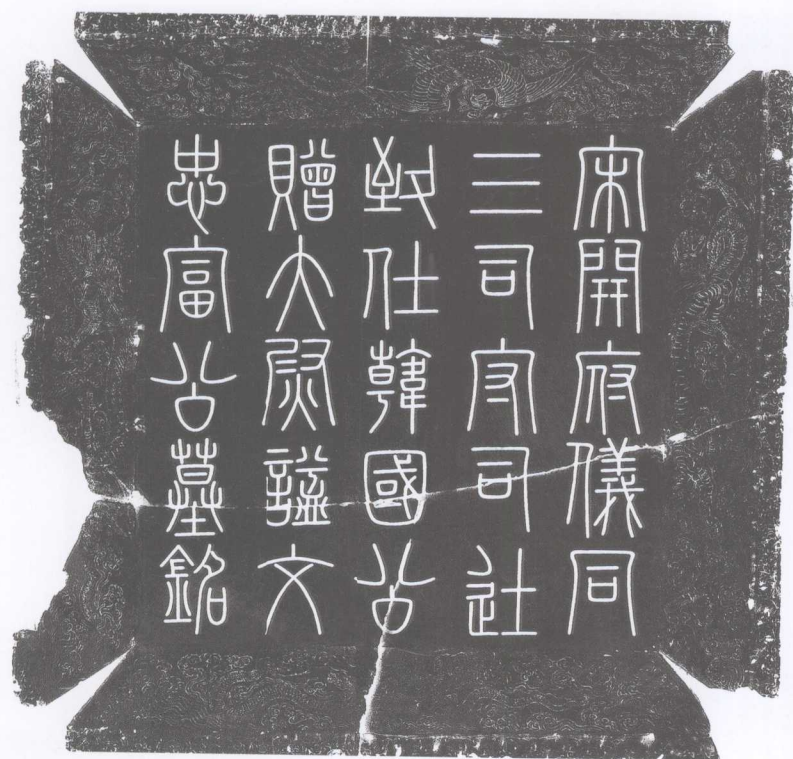 宋開府儀同
三司守司徒
致仕韓國公
贈太尉諡文
忠富公墓銘